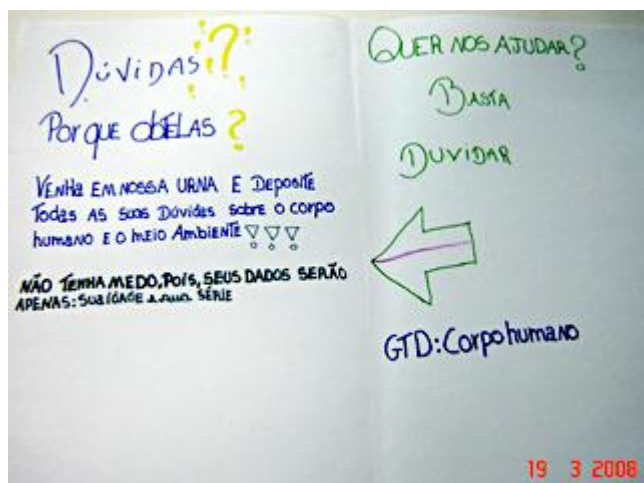 Dúvidas?
Por que obtelas?
Venha em nossa urna e deposite
todas as suas dúvidas sobre o corpo
humano e o meio ambiente!!!
Não tenha medo, pois, seus dados serão
apenas: sua idade e sua série
Quer nos ajudar?
Basta
Duvidar
GTD: Corpo humano
19 3 2008